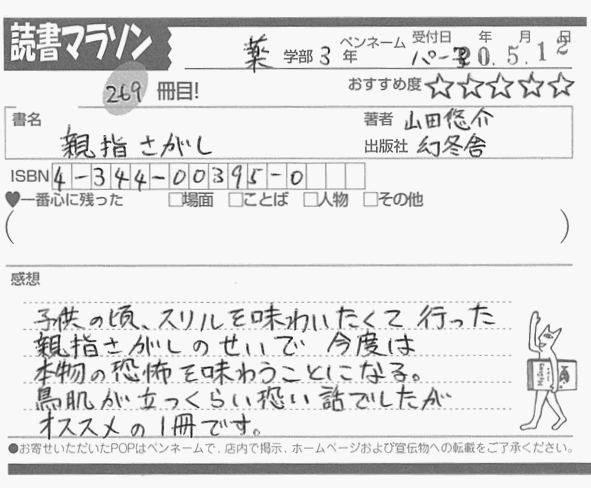 読書マラソン
薬 学部 3 年 ペンネーム パー子 受付日 年 月 日
0.5.12
269 冊目! おすすめ度☆☆☆☆☆
書名 親指さがし 著者 山田悠介
出版社 幻冬舎
ISBN 4-344-00395-0
♥一番心に残った □場面 □ことば □人物 □その他
( )
感想
子供の頃、スリルを味わいたくて行った
親指さがしのせいで 今度は
本物の恐怖を味わうことになる。
鳥肌が立つくらい恐い話でしたが
オススメの1冊です。
●お寄せいただいたPOPはペンネームで、店内で掲示、ホームページおよび宣伝物への転載をご了承ください。